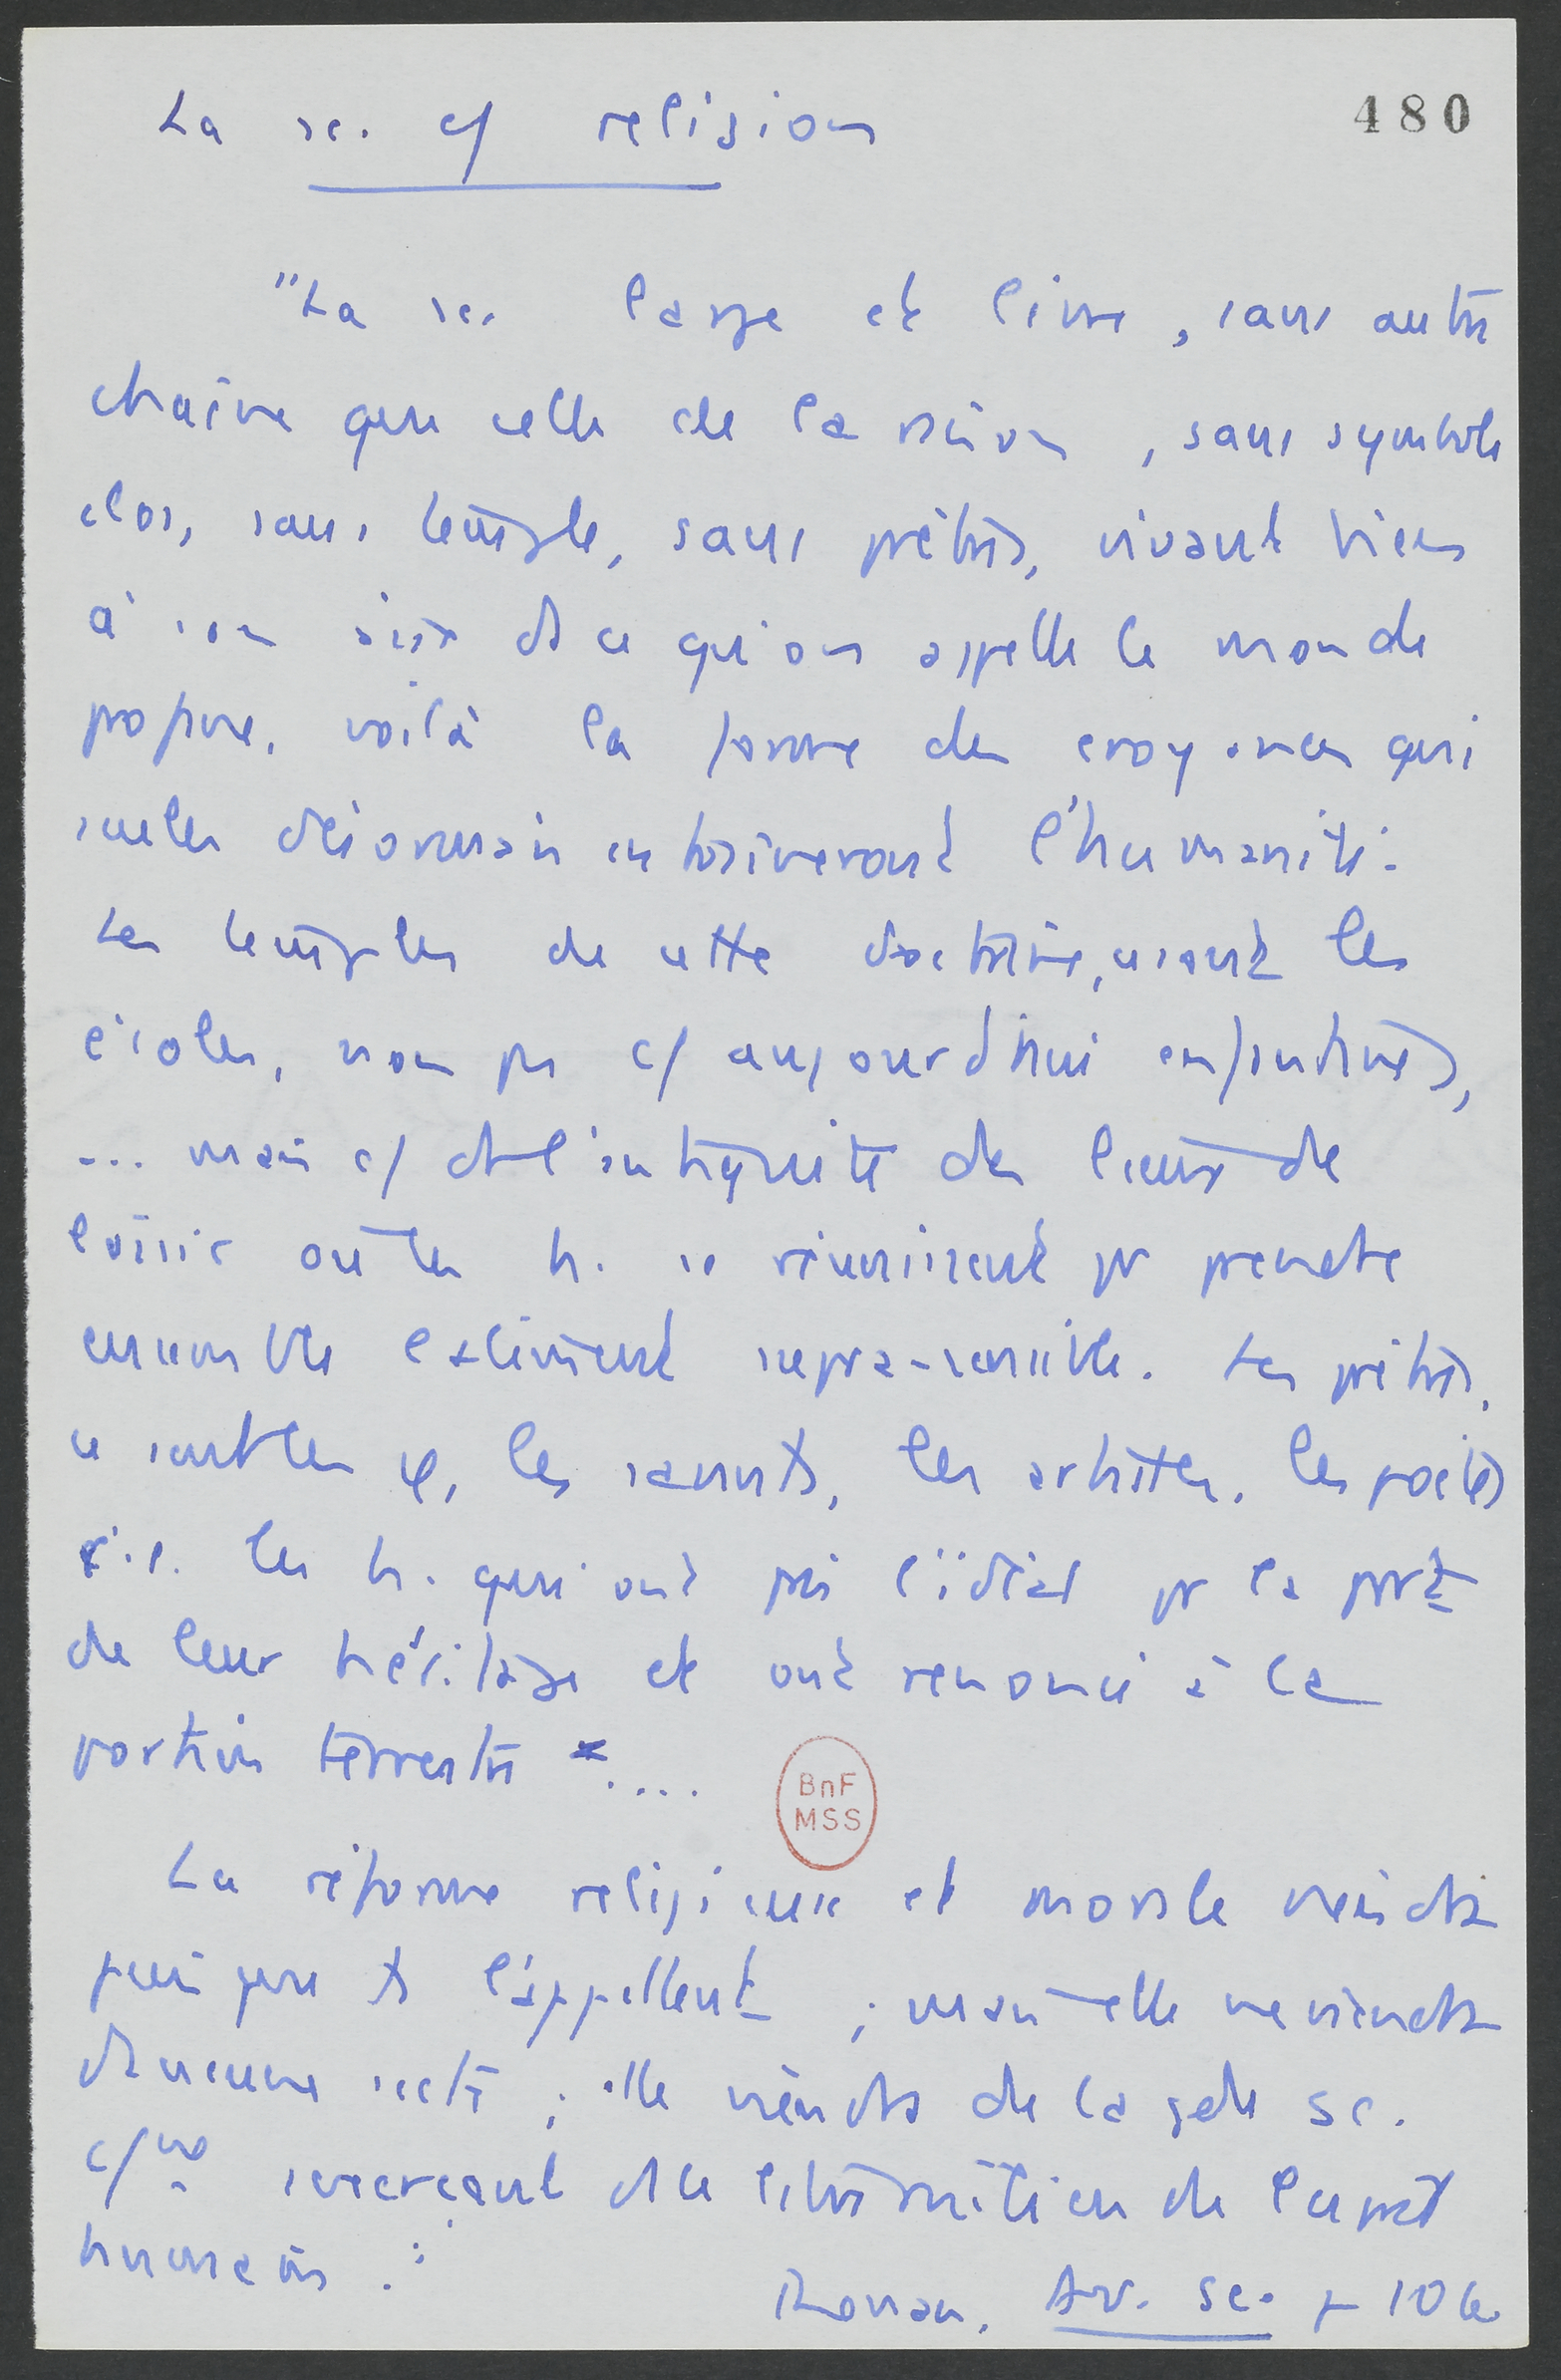 La sc. c/ religion
480
"La sc. large et libre, sans autre
chaîne que celle de la raison, sans symbole
clos, sans temple, sans prêtres, vivant bien
à son aise ds ce qu'on appelle le monde
profane, voilà la forme des croyances qui
seules désormais entraîneront l'humanité.
Les temples de cette doctrine, ce sont les
écoles, non pas c/ aujourd'hui enfantines,
... mais c/ ds l'antiquité des lieux de
loisir où les h. se réunissent pr prendre
ensemble l'aliment supra-sensible. Les prêtres,
ce sont les φ, les savants, les artistes, les poètes
c.à.d. les h. qui ont pris l'idéal pr la part
de leur héritage et ont renoncé à la
portion terrestre ....
BnF
MSS
La réforme religieuse et morale viendra
puisque ts l'appellent ; mais elle ne viendra
d'aucune secte ; elle viendra de la gde sc.
c/une s'exerçant ds le libre milieu de l'esprit
humain."
Renan, Av. sc. p 106